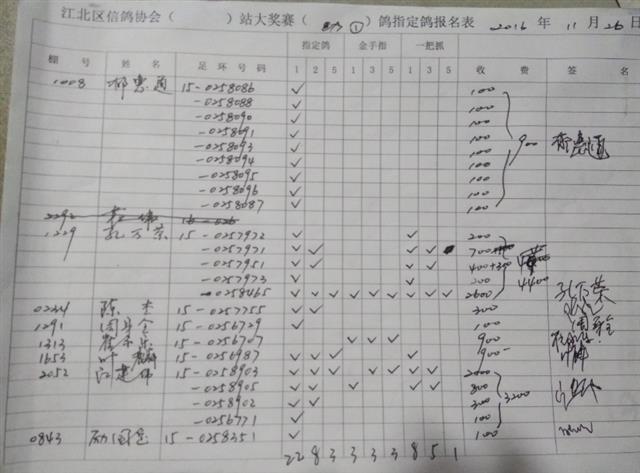 江北区信鸽协会（ ）站大奖赛（ ①）鸽指定鸽报名表 2016 年 11 月 26 日
指定鸽 金手指 一把抓
棚号 姓名 足环号码 1 2 5 1 3 5 1 3 5 收费 签名
1008 惠通 15-0258086 ✓ 100
-0258088 ✓ 100
-0258090 ✓ 100
-0258091 ✓ 100
-0258093 ✓ 100 900
-0258094 ✓ 100
-0258095 ✓ 100
-0258096 ✓ 100
-0258087 ✓ 100
2292
1229 孔万荣 15-0257972 ✓ ✓ 200
-0257971 ✓ ✓ ✓ ✓ 700
-0257951 ✓ ✓ ✓ ✓ 400+300
-0257973 ✓ ✓ 200 4400
-0258465 ✓ ✓ ✓ ✓ ✓ ✓ ✓ ✓ ✓ 2600 孔万荣
0224 陈 15-0257755 ✓ ✓ 300
1291 周 15-0256729 ✓ 100
1313 15-0256707 ✓ ✓ ✓ 900
1653 叶 15-0256987 ✓ ✓ ✓ ✓ 900
2052 江建伟 15-0258903 ✓ ✓ ✓ ✓ ✓ ✓ ✓
-0258905 ✓ ✓ ✓ ✓ 800 3200
-0258902 ✓ ✓ 300
-0256771 ✓ 100
0843 励国 15-0258351 ✓ 100
22 8 3 3 3 3 8 5 1